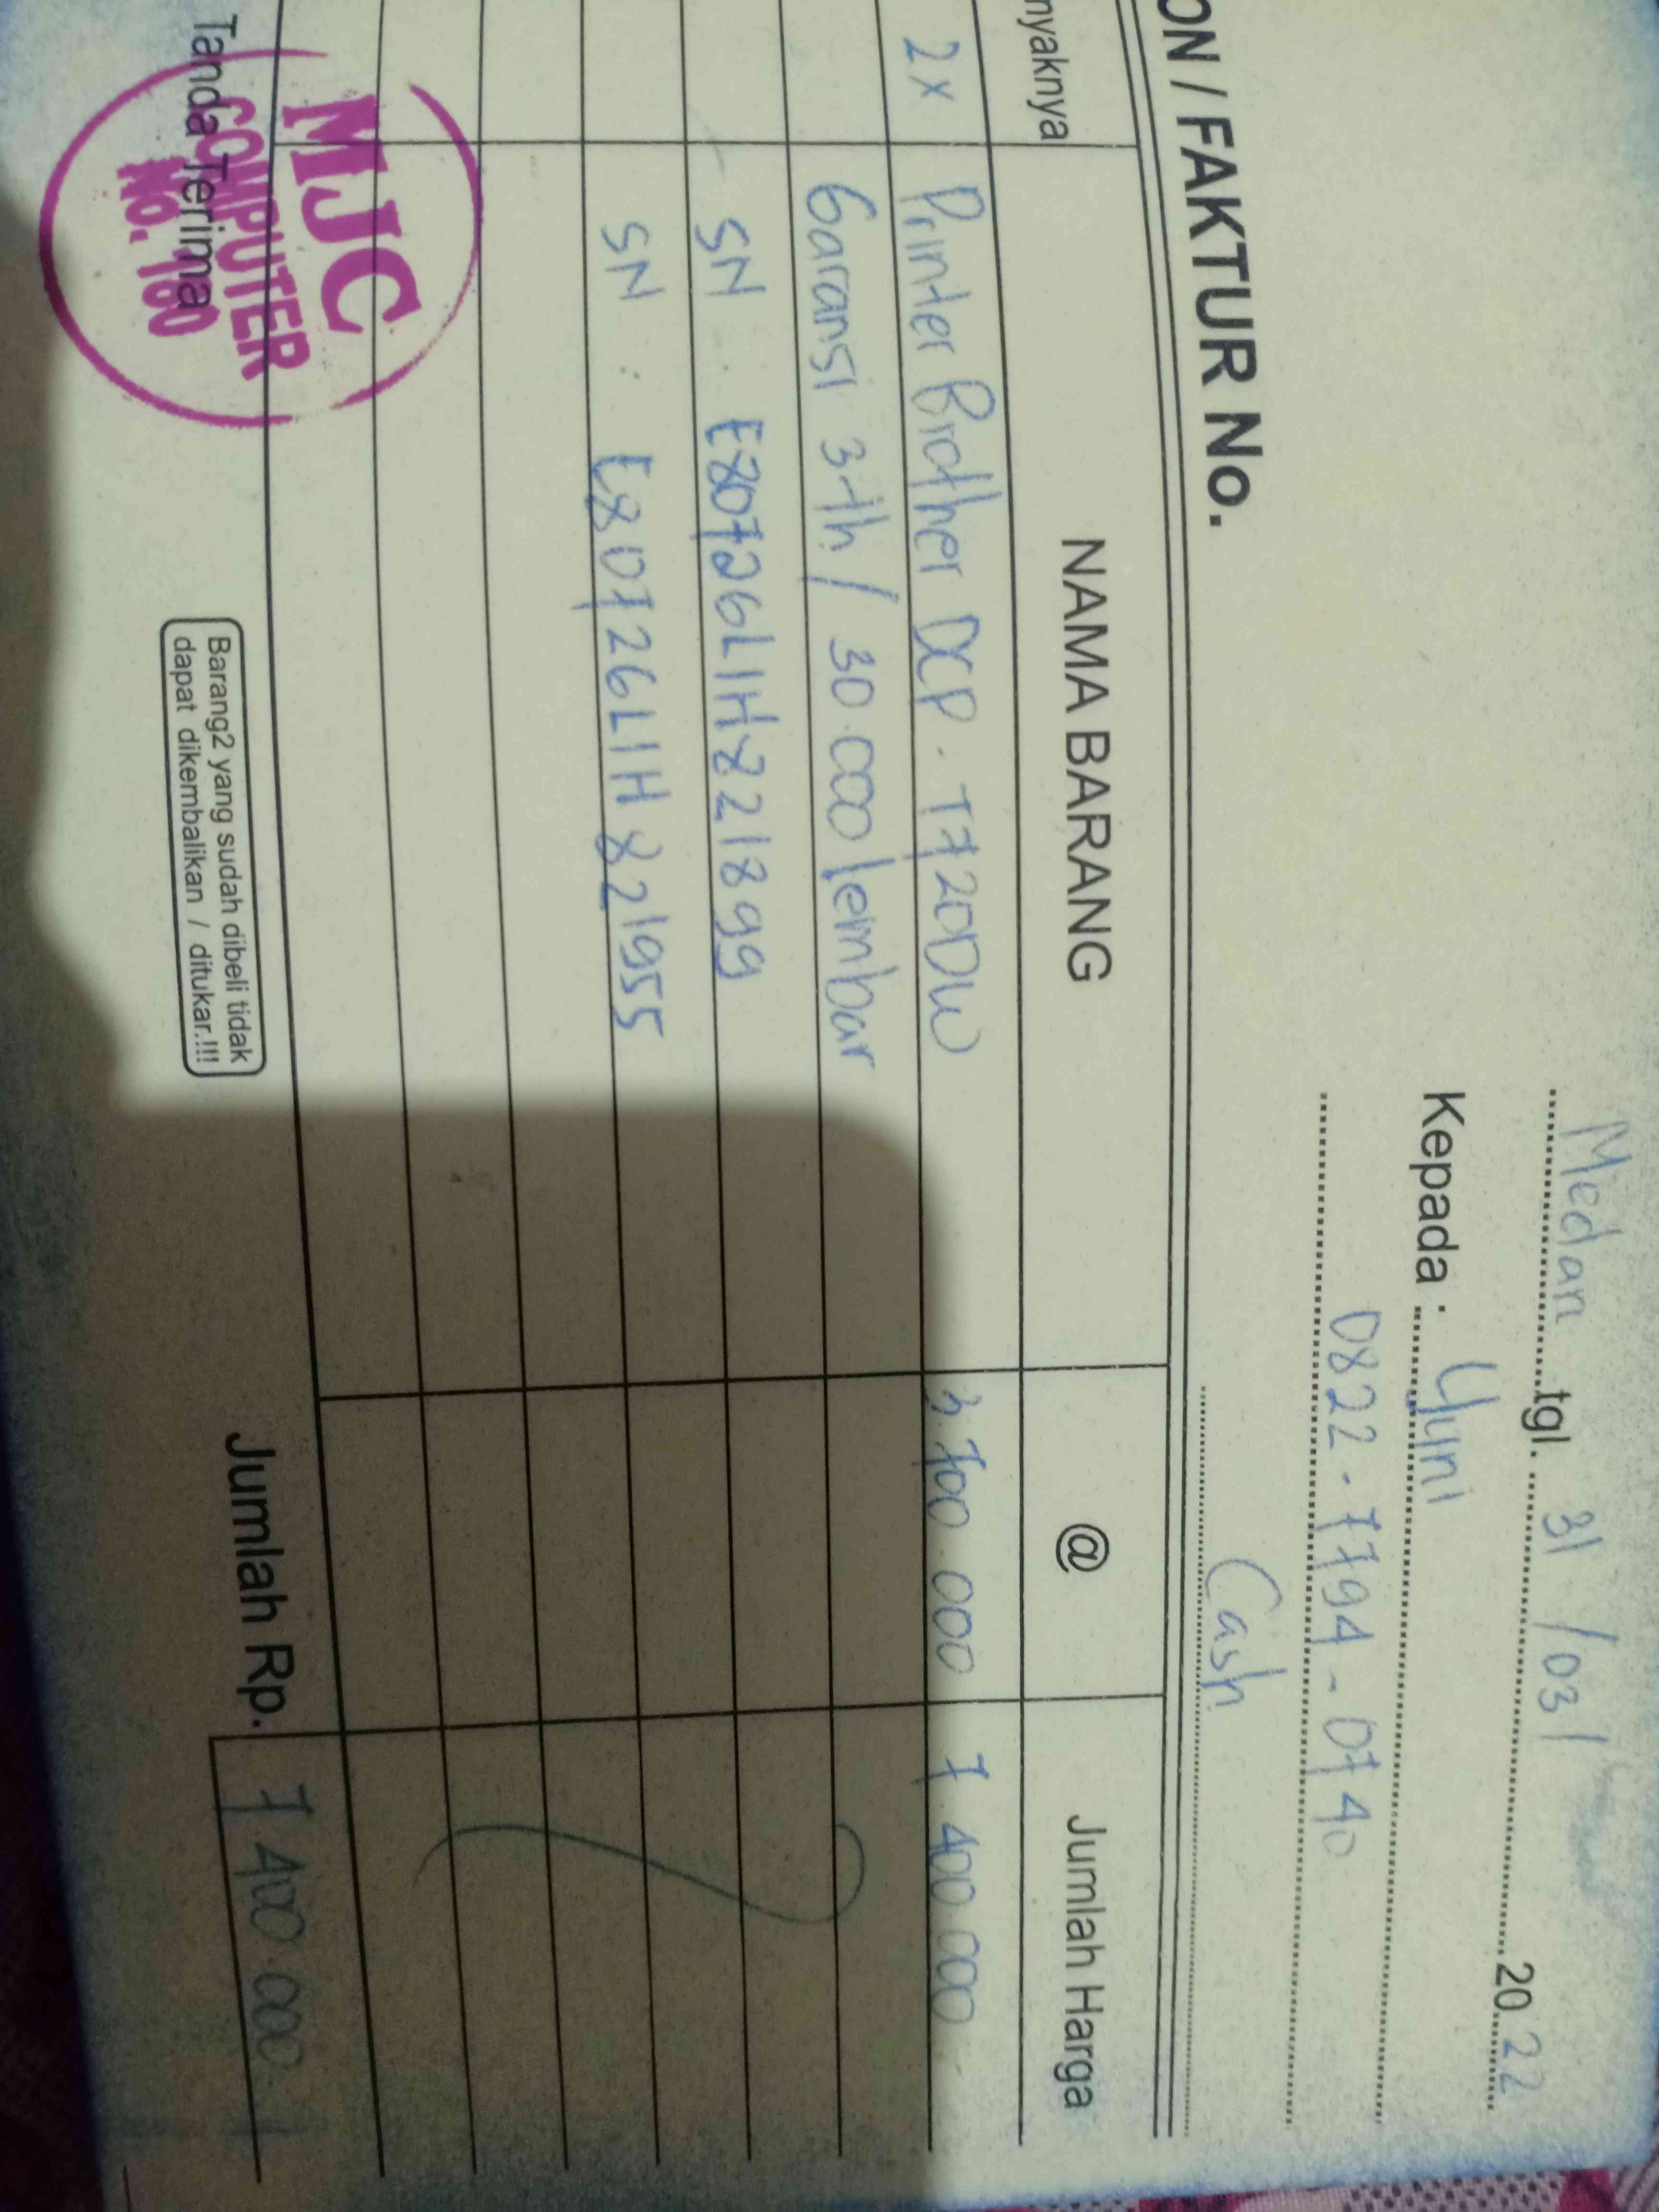 Medan tgl. 31 / 03 / 20.22
Kepada : Yuni
0822 - 7794 - 0740
Cash
ON / FAKTUR No.
nyaknya NAMA BARANG @ Jumlah Harga
2x Printer Brother DCP . T720DW 3.700.000 7.400.000
Garansi 3 th / 30.000 lembar
SN : E80726L1H821899
SN : E80726L1H821955
Jumlah Rp. 7.400.000
Tanda Terima
MJC
COMPUTER
No. 160
Barang2 yang sudah dibeli tidak
dapat dikembalikan / ditukar.!!!